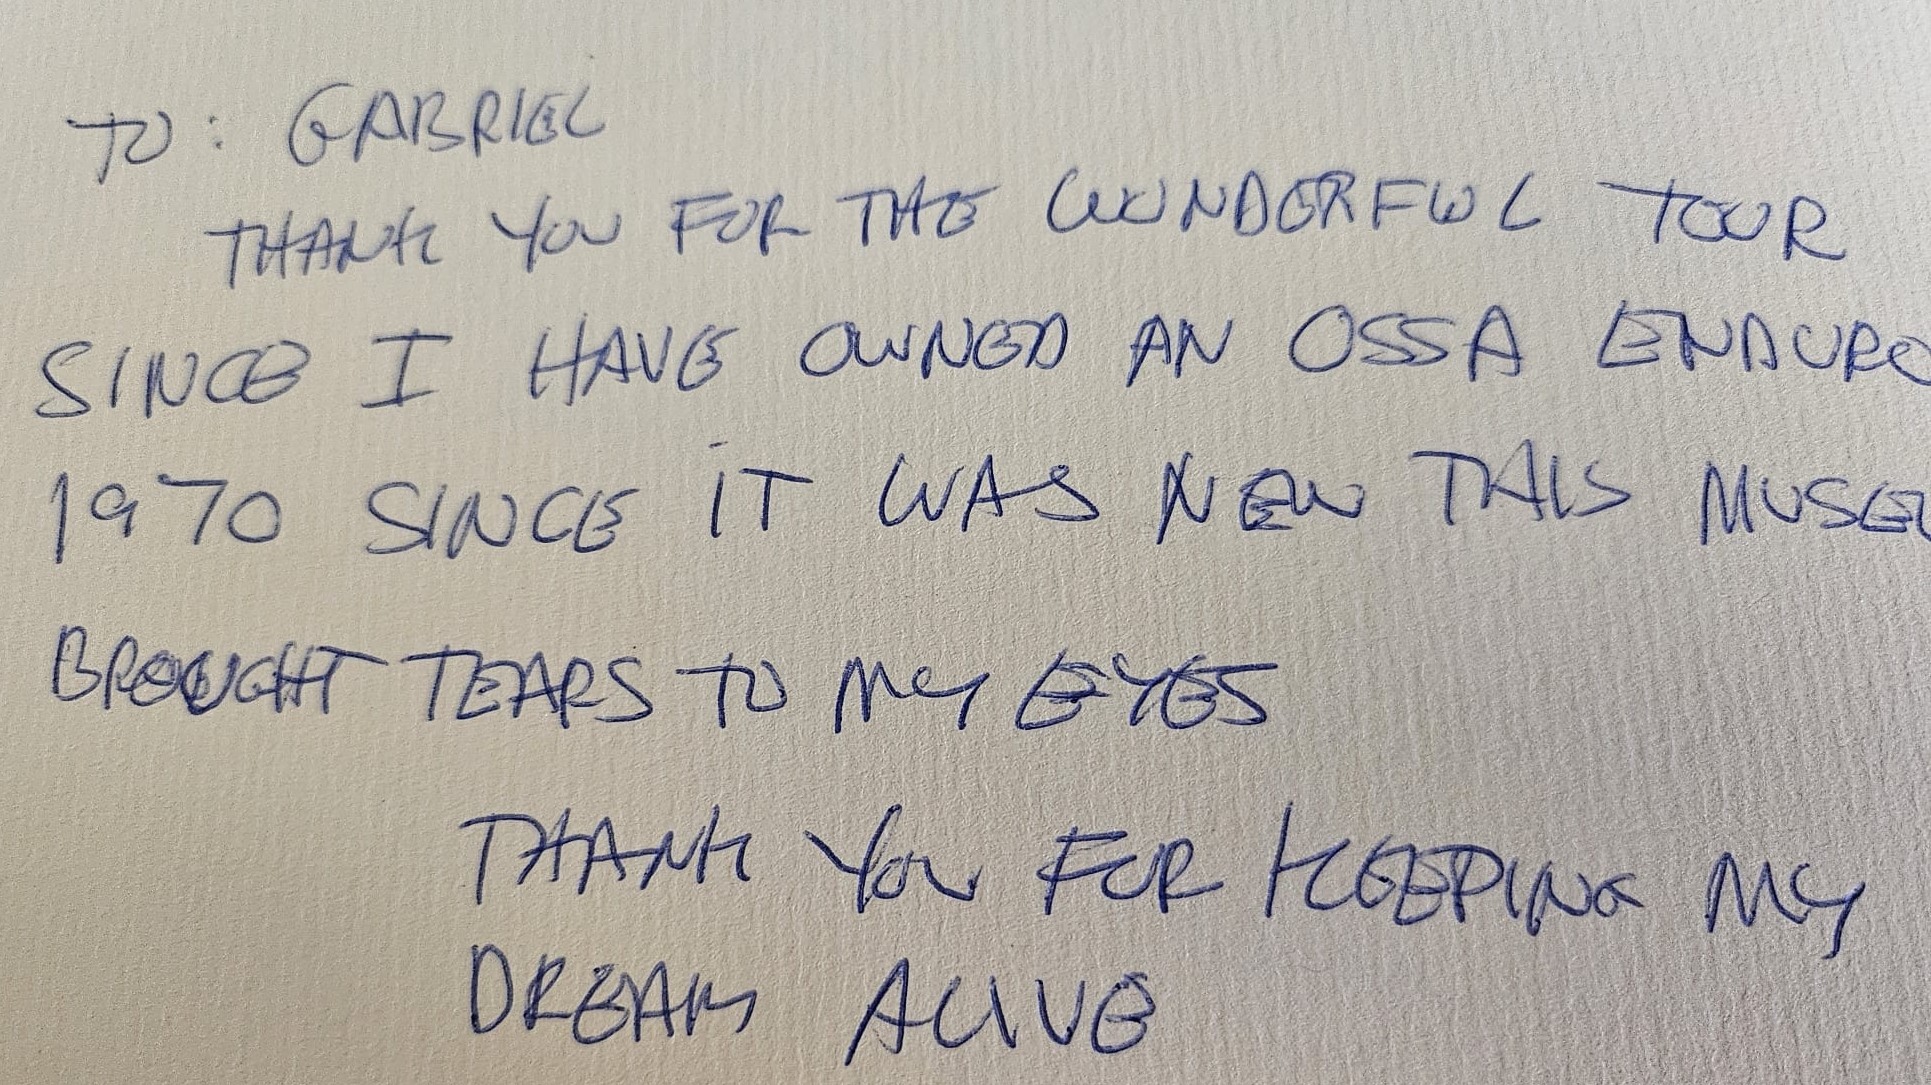 TO: GABRIEL
THANK YOU FOR THE WONDERFUL TOUR
SINCE I HAVE OWNED AN OSSA ENDURO
1970 SINCE IT WAS NEW THIS MUSEU
BROUGHT TEARS TO MY EYES
THANK YOU FOR KEEPING MY
DREAM ALIVE